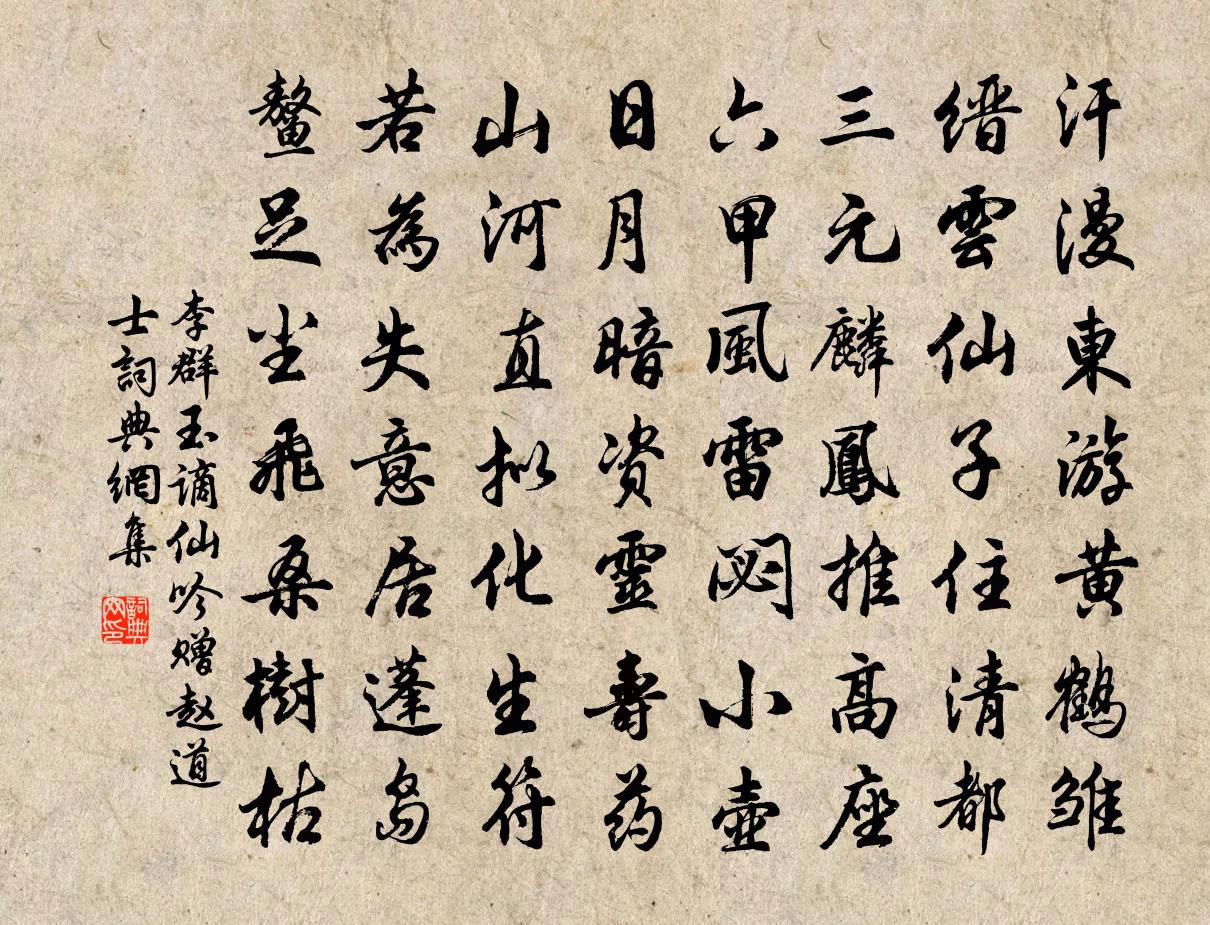 汗漫東游黃鶴雏
缙雲仙子住清都
三元麟鳳推高座
六甲風雷閟小壺
日月暗资靈壽药
山河直拟化生符
若為失意居蓬岛
鳌足尘飛桑樹枯
李群玉谪仙吟赠赵道
士詞典網集
詞典網印